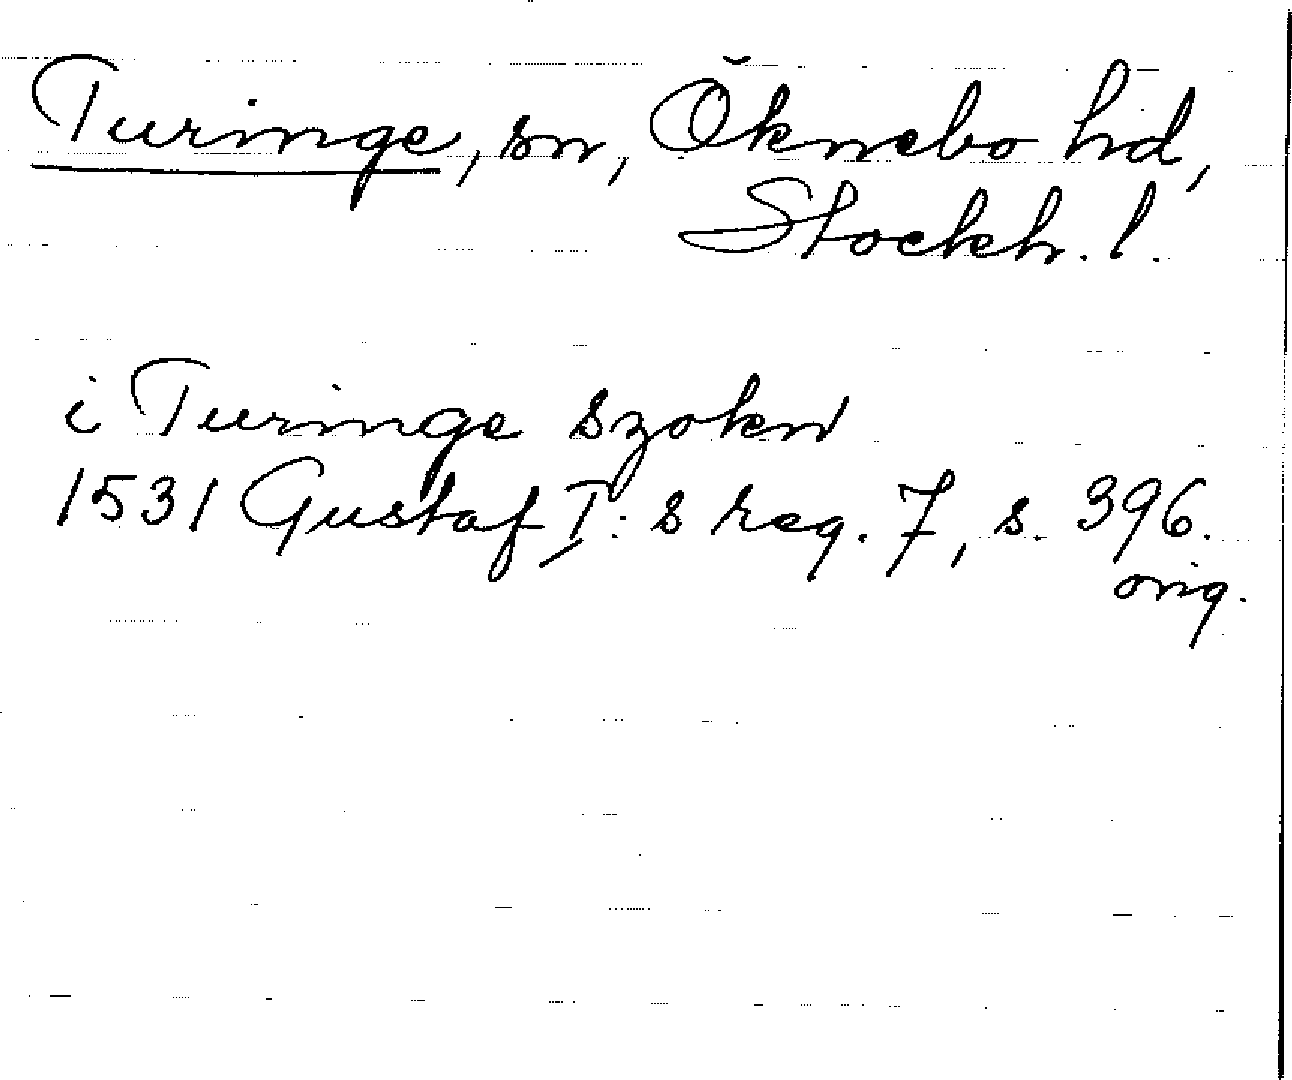 Turinge, sn, Öknebo hd,
Stockh. l.
i Turinge szokn
1531 Gustaf I:s reg. 7, s. 396.
orig.